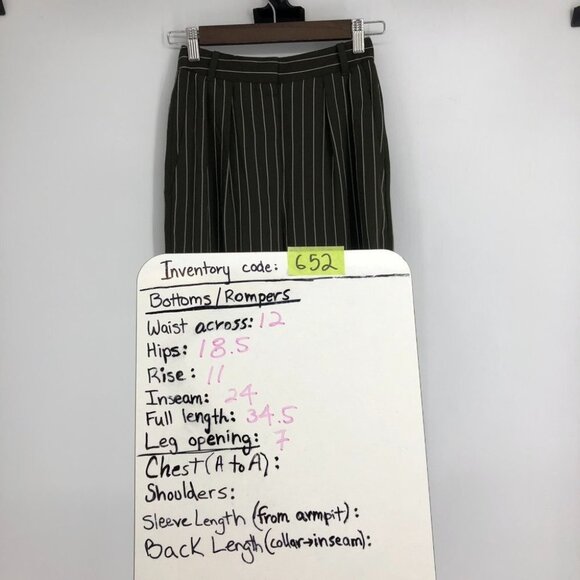 Inventory code: 652
Bottoms/Rompers
Waist across: 12
Hips: 18.5
Rise: 11
Inseam: 24
Full length: 34.5
Leg opening: 7
Chest (A to A):
Shoulders:
Sleeve Length (from armpit):
Back Length (collar→inseam):